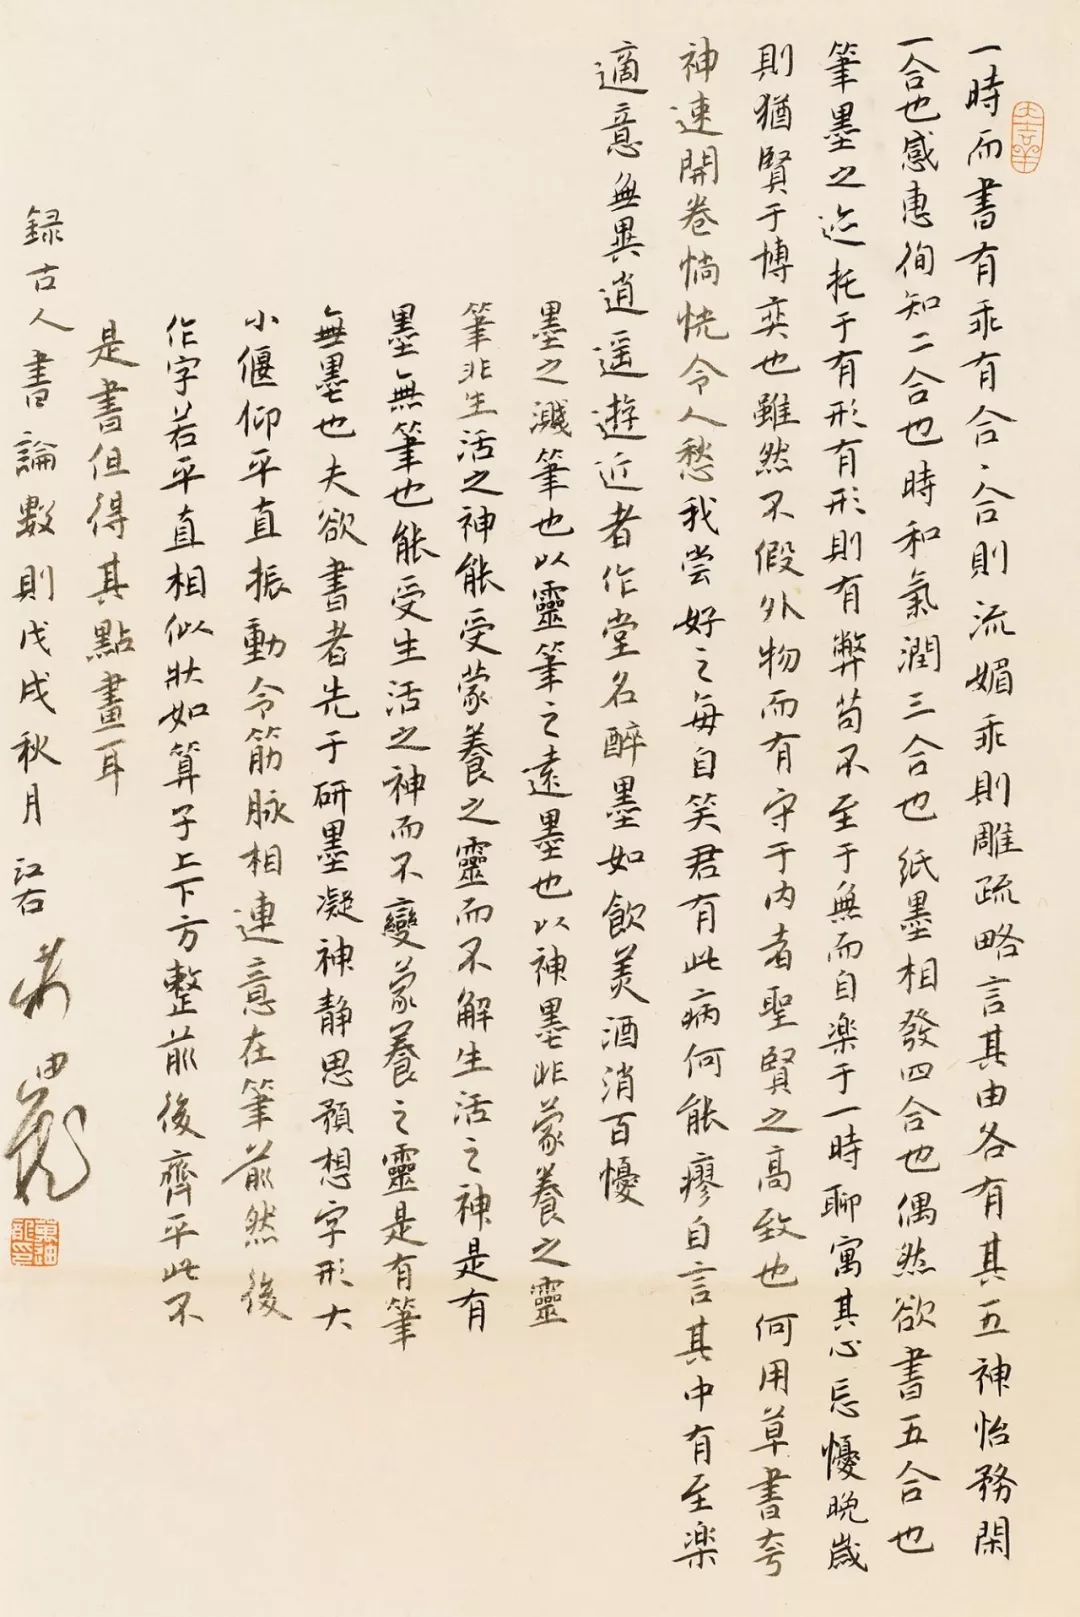 一時而書有乖有合、合則流媚乖則雕疏略言其由各有其五神怡務閑
一合也感惠徇知二合也時和氣潤三合也紙墨相發四合也偶然欲書五合也
筆墨之迹托于有形有形則有弊苟不至于無而自楽于一時聊寓其心忘憂晚歲
則猶賢于博奕也雖然不假外物而有守于内者聖賢之高致也何用草書夸
神速開卷惝恍令人愁我尝好之每自笑君有此病何能瘳自言其中有至楽
適意無異逍遥遊近者作堂名醉墨如飲美酒消百憂
墨之濺筆也以靈筆之遠墨也以神墨非蒙養之靈
筆非生活之神能受蒙養之靈而不解生活之神是有
墨無筆也能受生活之神而不變蒙養之靈是有筆
無墨也夫欲書者先于研墨凝神静思預想字形大
小偃仰平直振動令筋脉相連意在筆前然後
作字若平直相似狀如算子上下方整前後齊平此不
是書但得其點畫耳
録古人書論數則戊戌秋月江右